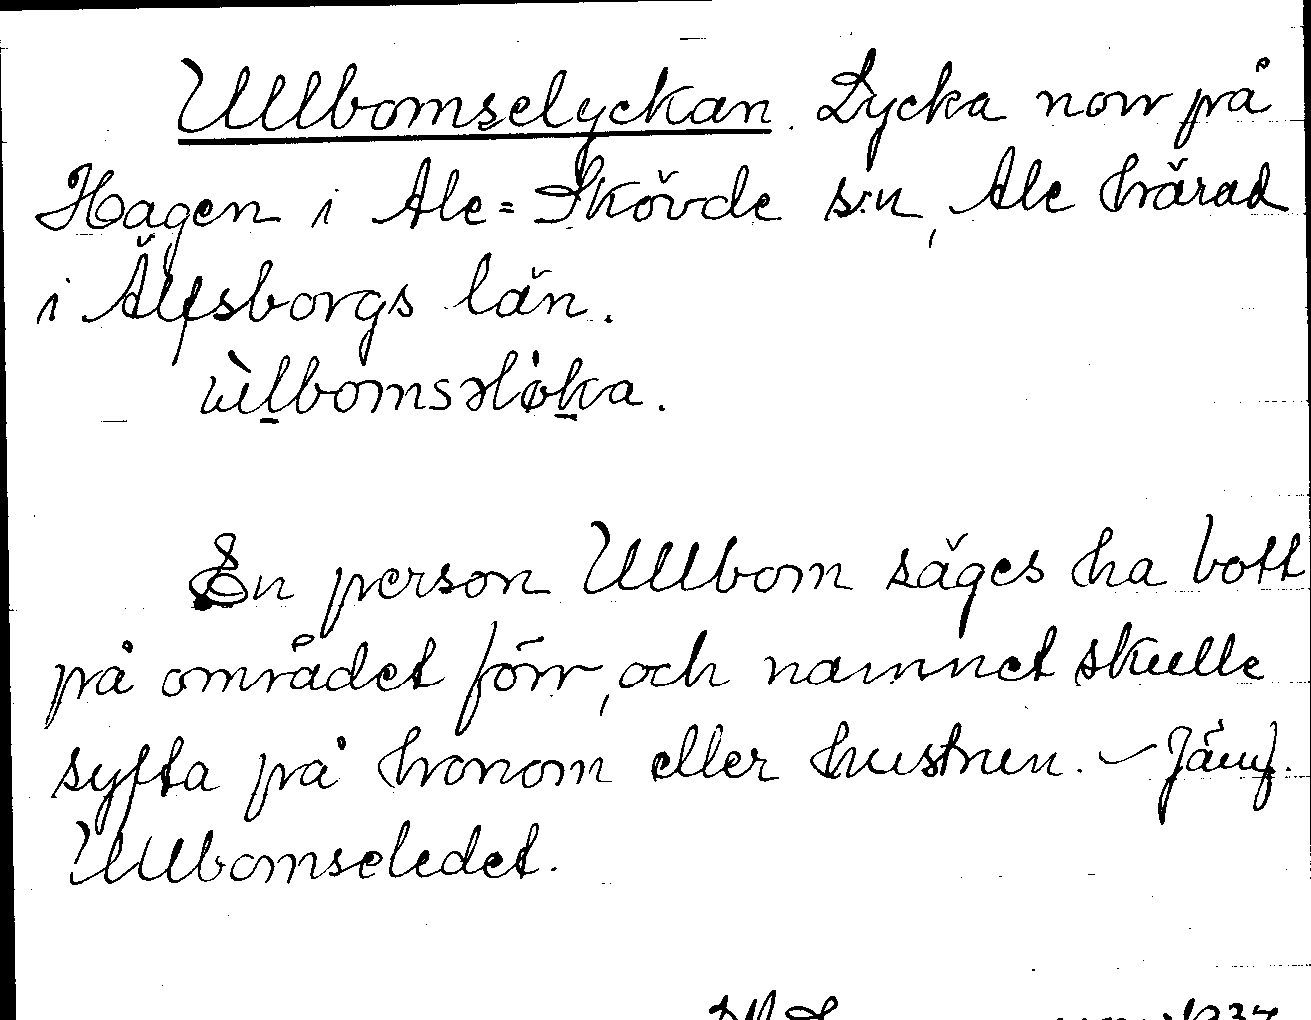 Ullbomselyckan. Lycka norr på
Hagen i Ale-Skövde s:n, Ale härad
i Älfsborgs län.
En person Ullbom säges ha bott
på området förr, och namnet skulle
syfta på honom eller hustrun. – Jämf.
Ullbomseledet.